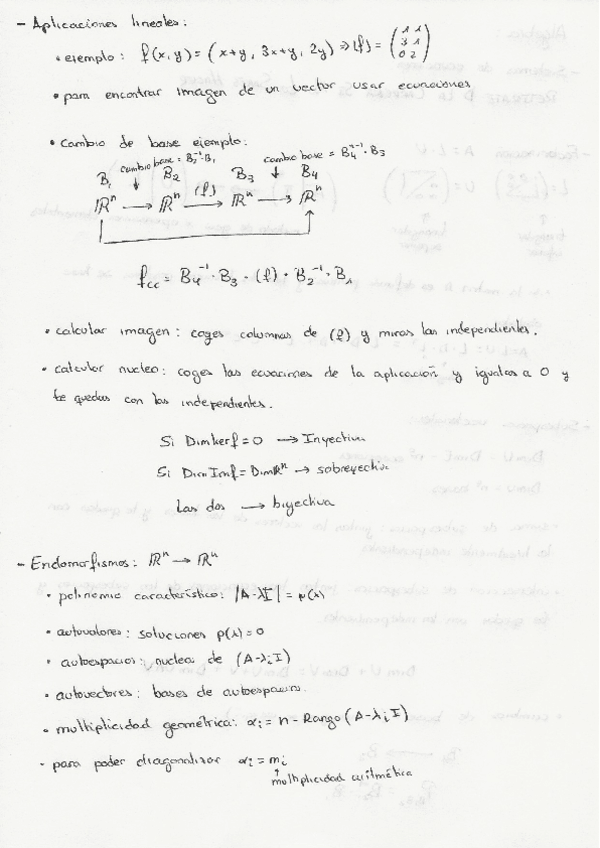 - Aplicaciones lineales:
• ejemplo: f(x,y) = (x+y, 3x+y, 2y) ⇒ (f) = (1 1 / 3 1 / 0 2)
• para encontrar imagen de un vector usar ecuaciones
• Cambio de base ejemplo:
cambio base = B₂⁻¹·B₁ cambio base = B₄⁻¹·B₃
B₁ ↓ B₂ B₃ ↓ B₄
ℝⁿ → ℝⁿ (f)→ ℝⁿ → ℝⁿ
f_cc = B₄⁻¹ · B₃ · (f) · B₂⁻¹ · B₁
• calcular imagen: coges columnas de (f) y miras las independientes.
• calcular nucleo: coges las ecuaciones de la aplicación y igualas a 0 y
te quedas con las independientes.
Si Dimkerf = 0 → Inyectiva
Si DimImf = Dimℝⁿ → sobreyectiva
Las dos → biyectiva
- Endomorfismos: ℝⁿ → ℝⁿ
• polinomio característico: |A-λI| = p(λ)
• autovalores: soluciones p(λ)=0
• autoespacios: nucleo de (A-λᵢI)
• autovectores: bases de autoespacios.
• multiplicidad geométrica: αᵢ = n - Rango(A-λᵢI)
• para poder diagonalizar αᵢ = mᵢ
↑ multiplicidad aritmética